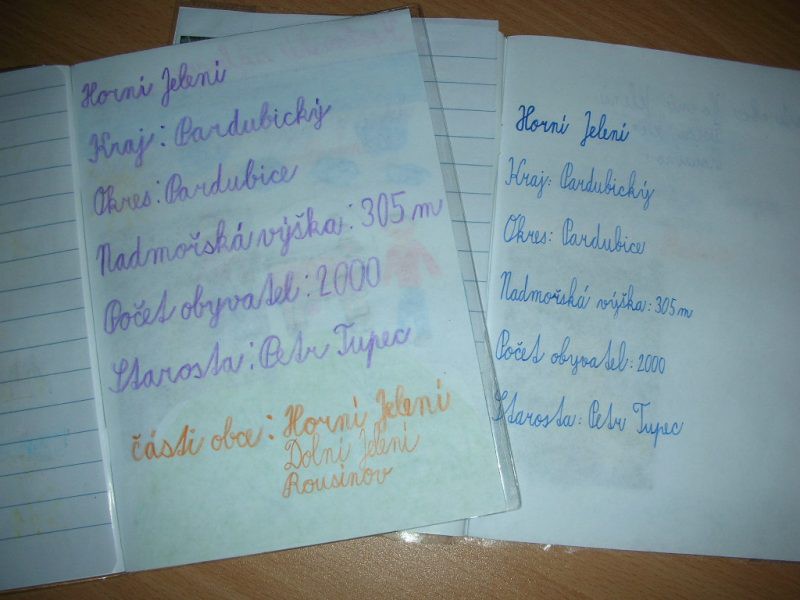 Horní Jelení
Kraj: Pardubický
Okres: Pardubice
Nadmořská výška: 305 m
Počet obyvatel: 2000
Starosta: Petr Tupec
části obce: Horní Jelení
Dolní Jelení
Rousínov
Horní Jelení
Kraj: Pardubický
Okres: Pardubice
Nadmořská výška: 305 m
Počet obyvatel: 2000
Starosta: Petr Tupec